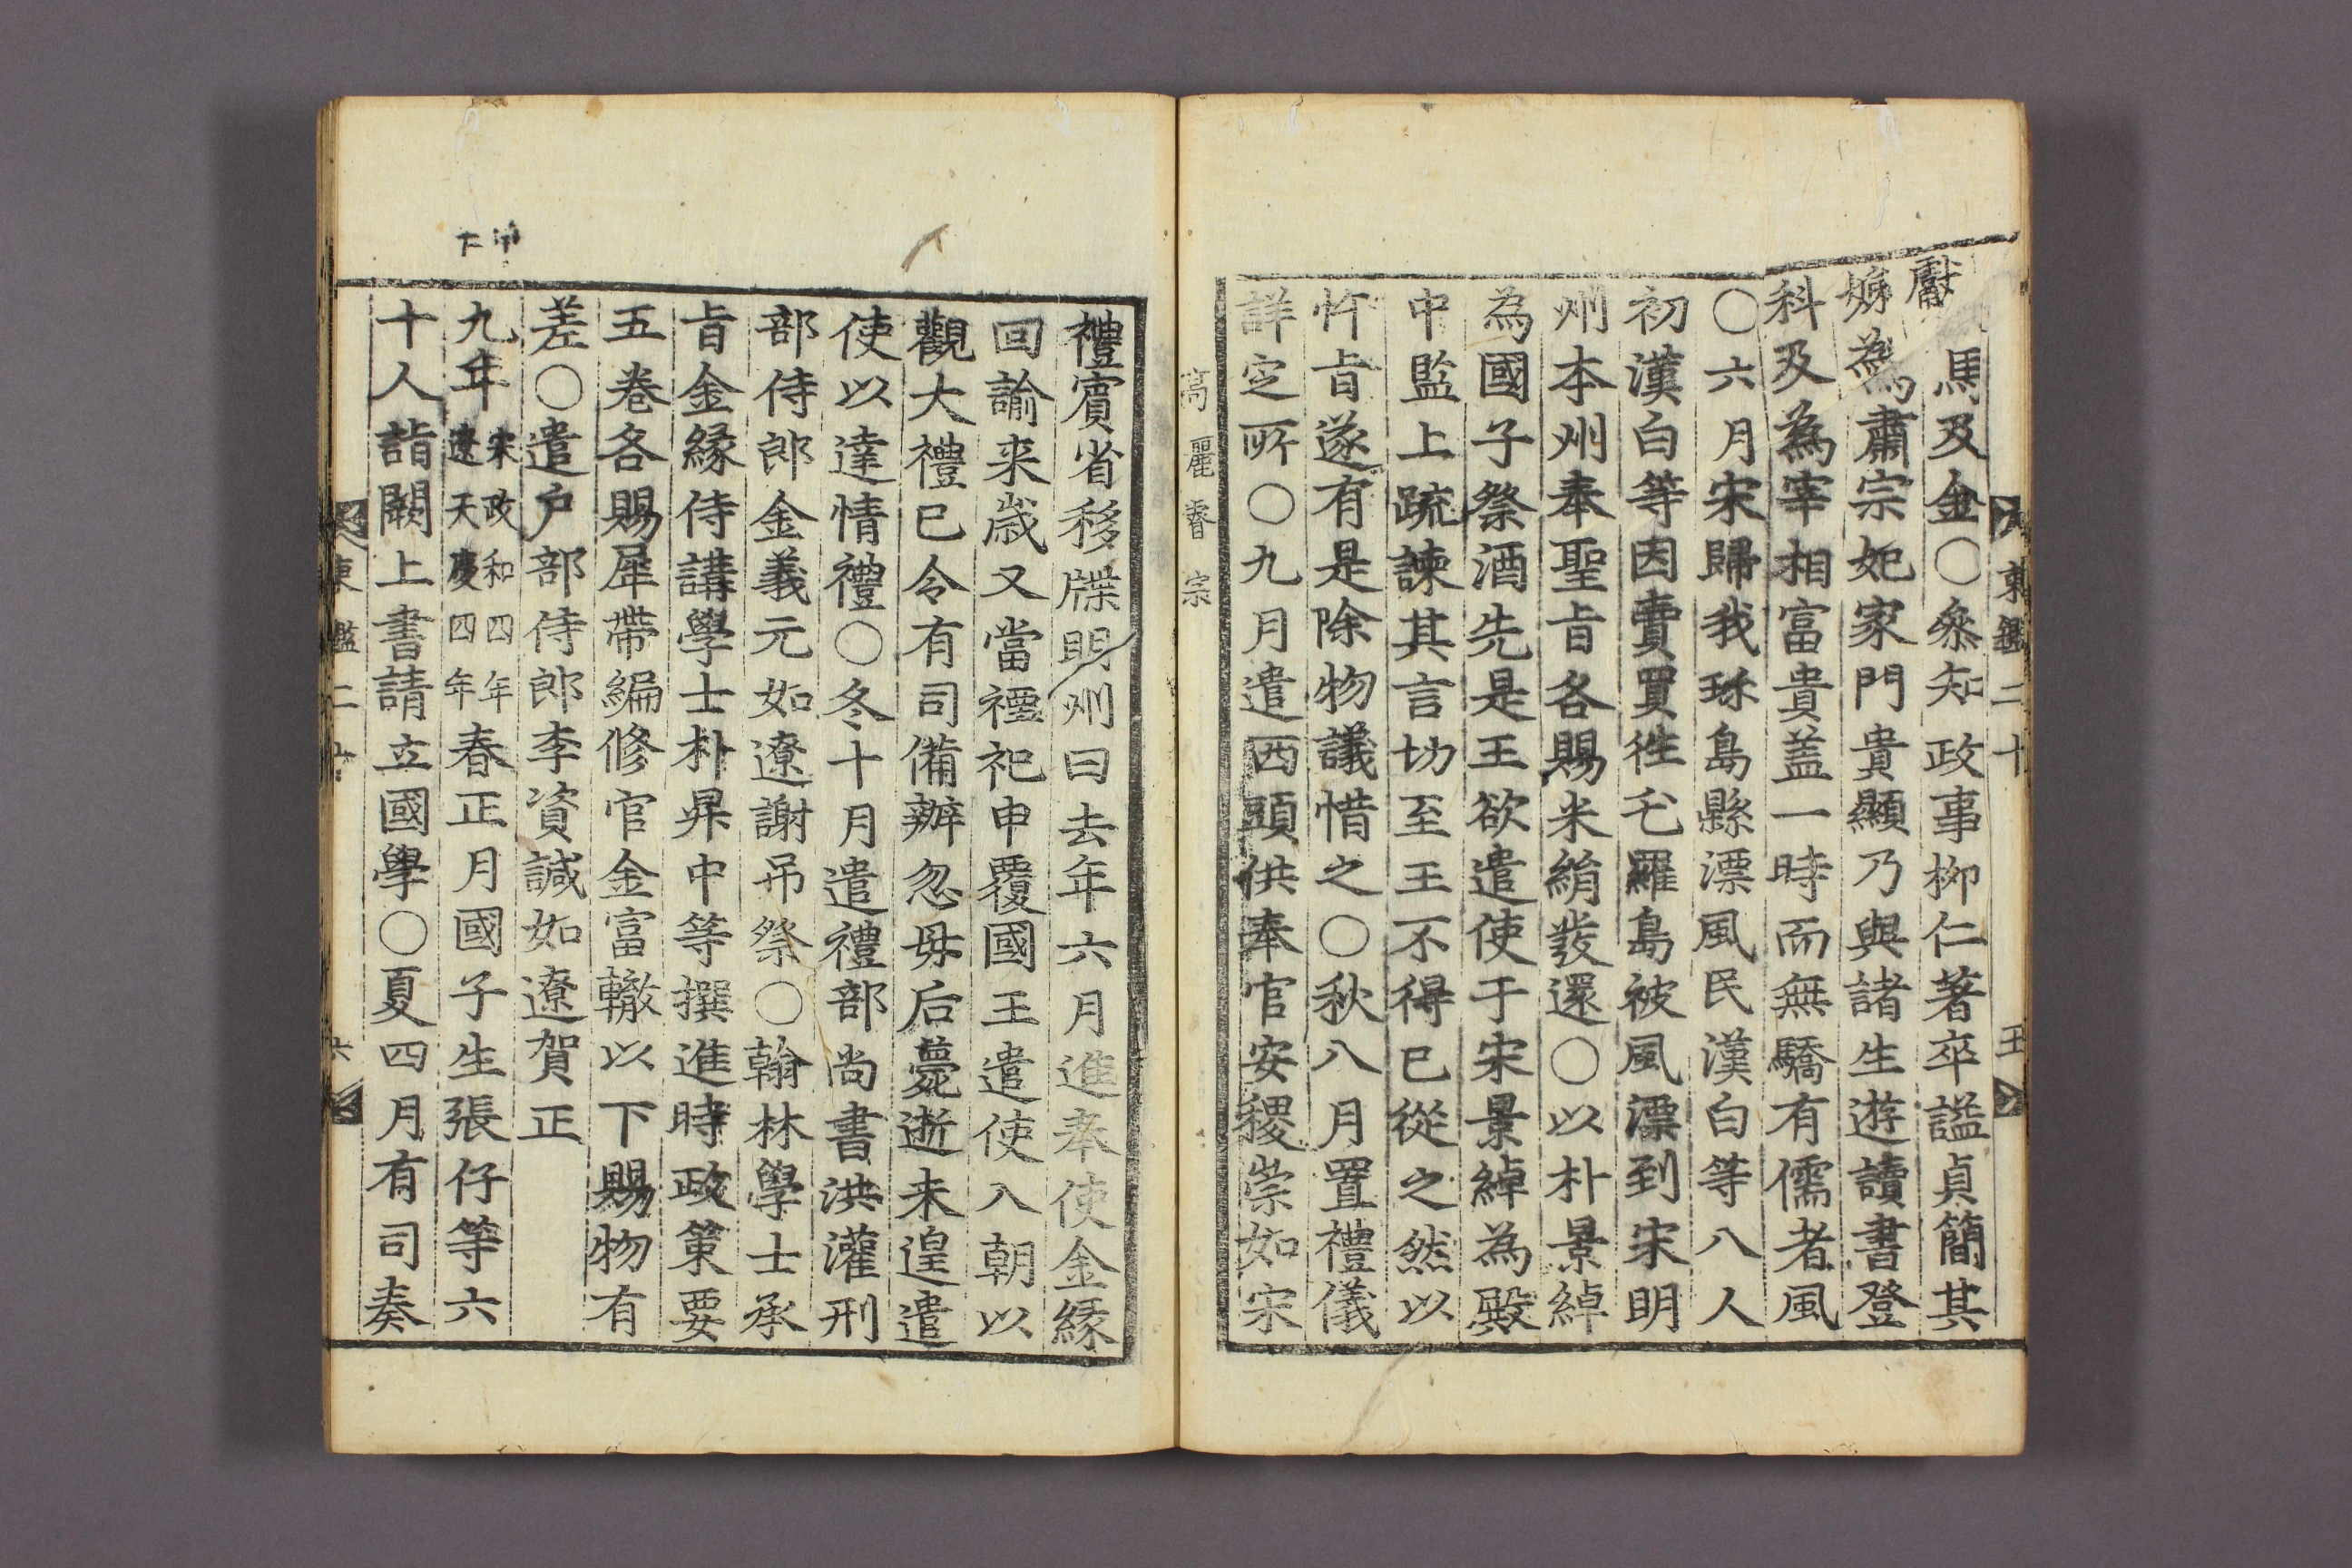 東鑑二十
五
獻馬及金〇叅知政事柳仁著卒謚貞簡其
娣為肅宗妃家門貴顯乃與諸生遊讀書登
科及為宰相富貴盖一時而無驕有儒者風
〇六月宋歸我珎島縣漂風民漢白等八人
初漢白等因賣買徃乇羅島被風漂到宋明
州本州奉聖旨各賜米絹發還〇以朴景綽
為國子祭酒先是王欲遣使于宋景綽為殿
中監上疏諫其言切至王不得已從之然以
忤旨遂有是除物議惜之〇秋八月置禮儀
詳定所〇九月遣西頭供奉官安稷崇如宋
高麗睿宗
禮賔省移牒明州曰去年六月進奉使金緣
回諭来歲又當禋祀申覆國王遣使入朝以
觀大禮已令有司備辦忽母后薨逝未遑遣
使以達情禮〇冬十月遣禮部尚書洪灌刑
部侍郎金義元如遼謝吊祭〇翰林學士承
旨金緣侍講學士朴昇中等撰進時政策要
五卷各賜犀帶編修官金富轍以下賜物有
差〇遣戶部侍郎李資諴如遼賀正
九年宋政和四年遼天慶四年春正月國子生張仔等六
十人詣闕上書請立國學〇夏四月有司奏
東鑑二十
六